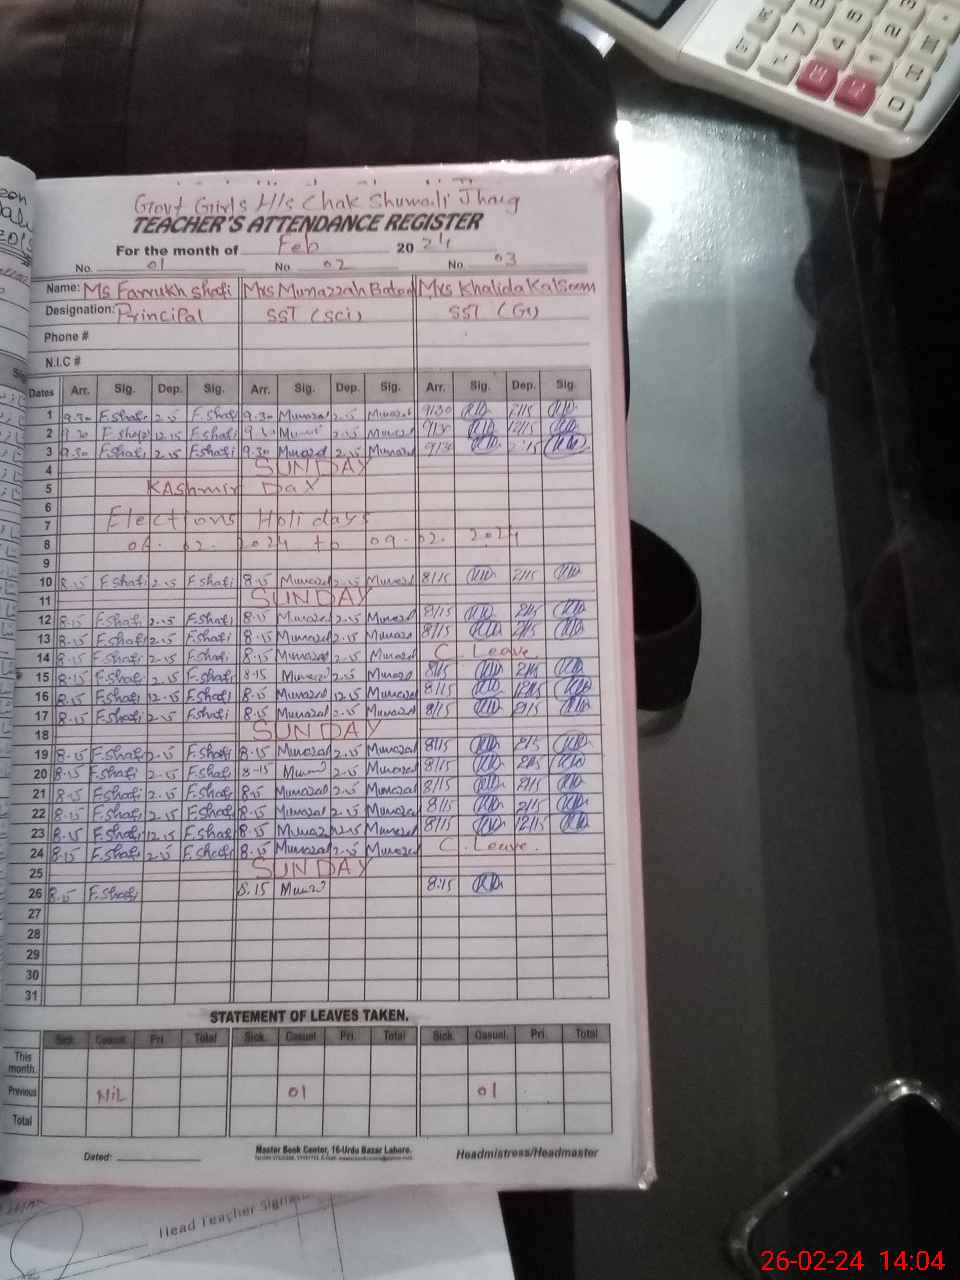 Govt Girls H/s Chak Shumali Jhang
TEACHER'S ATTENDANCE REGISTER
For the month of Feb 2024
No. 01 No. 02 No. 03
Name: Ms Farrukh Shafi Mrs Munazzah Batool Mrs Khalida Kalsoom
Designation: Principal SST (Sci) SST (G)
Phone #
N.I.C #
Dates Arr. Sig. Dep. Sig. Arr. Sig. Dep. Sig. Arr. Sig. Dep. Sig.
1 9.30 F.Shafi 2.15 F.Shafi 9.30 Munazal 2.15 Munazal 9/30 2/15
2 9.30 F.Shafi 12.15 F.Shafi 2.15 Munazal 9/30 12/15
3 9.30 F.Shafi 2.15 F.Shafi 9.30 Munazal 2.15 Munazal 9/30 2/15
4 SUNDAY
5 KAshmir DaY
6
7 Elections Holidays
8 06. 02. 2024 to 09. 02. 2024
9
10 8.15 F.Shafi 2.15 F.Shafi 8.15 Munazal 2.15 Munazal 8/15 2/15
11 SUNDAY
12 8.15 F.Shafi 2.15 F.Shafi 8.15 Munazal 2.15 Munazal 8/15 2/15
13 8.15 F.Shafi 2.15 F.Shafi 8.15 Munazal 2.15 Munazal 8/15 2/15
14 8.15 F.Shafi 2.15 F.Shafi 8.15 Munazal 2.15 Munazal C. Leave
15 8.15 F.Shafi 2.15 F.Shafi 8.15 Munazal 2.15 Munazal 8/15 2/15
16 8.15 F.Shafi 12.15 F.Shafi 8.15 Munazal 12.15 Munazal 8/15 12/15
17 8.15 F.Shafi 2.15 F.Shafi 8.15 Munazal 2.15 Munazal 8/15 2/15
18 SUNDAY
19 8.15 F.Shafi 2.15 F.Shafi 8.15 Munazal 2.15 Munazal 8/15 2/15
20 8.15 F.Shafi 2.15 F.Shafi 8.15 2.15 Munazal 8/15 2/15
21 8.15 F.Shafi 2.15 F.Shafi 8.15 Munazal 2.15 Munazal 8/15 2/15
22 8.15 F.Shafi 2.15 F.Shafi 8.15 Munazal 2.15 Munazal 8/15 2/15
23 8.15 F.Shafi 12.15 F.Shafi 8.15 Munazal 12.15 Munazal 8/15 12/15
24 8.15 F.Shafi 2.15 F.Shafi 8.15 Munazal 2.15 Munazal C. Leave.
25 SUNDAY
26 8.15 F.Shafi 8.15 8:15
27
28
29
30
31
STATEMENT OF LEAVES TAKEN.
Sick. Casual. Pri. Total Sick. Casual Pri. Total Sick. Casual. Pri. Total
This month.
Previous NiL 01 01
Total
Dated:
Master Book Center, 16-Urdu Bazar Lahore.
Headmistress/Headmaster
Head Teacher Signature
26-02-24 14:04